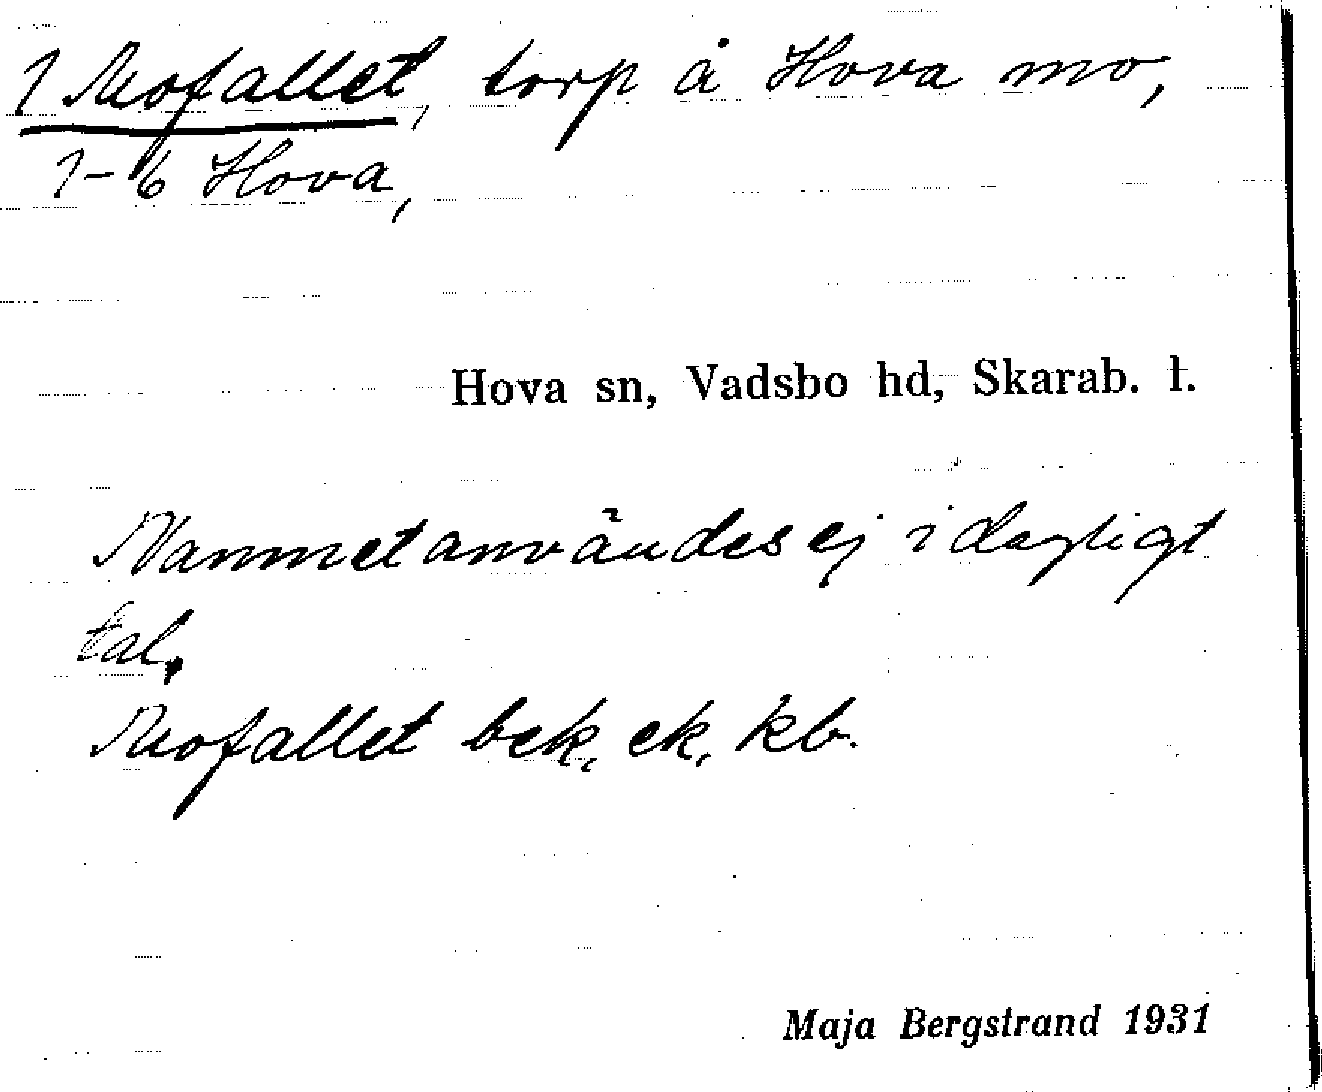 1 Mofallet, torp å Hova mo,
1-6 Hova,
Hova sn, Vadsbo hd, Skarab. l.
Namnet användes ej i dagligt
tal.
Mofallet bek. ek. kb.
Maja Bergstrand 1931